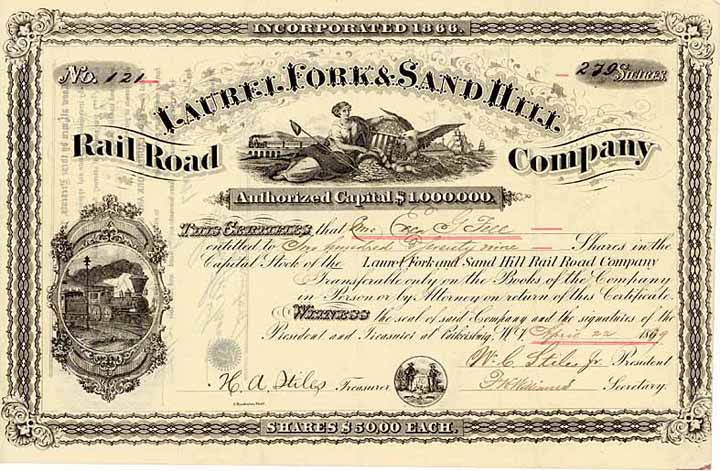 INCORPORATED 1866.
No. 121
279 SHARES
LAUREL FORK & SAND HILL
Rail Road Company
Authorized Capital, $1,000,000.
THIS CERTIFIES that
entitled to Two hundred Seventy nine Shares in the
Capital Stock of the Laurel Fork and Sand Hill Rail Road Company
Transferable only on the Books of the Company
in Person or by Attorney on return of this Certificate.
WITNESS the seal of said Company and the signatures of the
President and Treasurer at April 22 1869
W. C. Stiles Jr. President
H. A. Stiles Treasurer
Secretary.
SHARES $50,00 EACH.